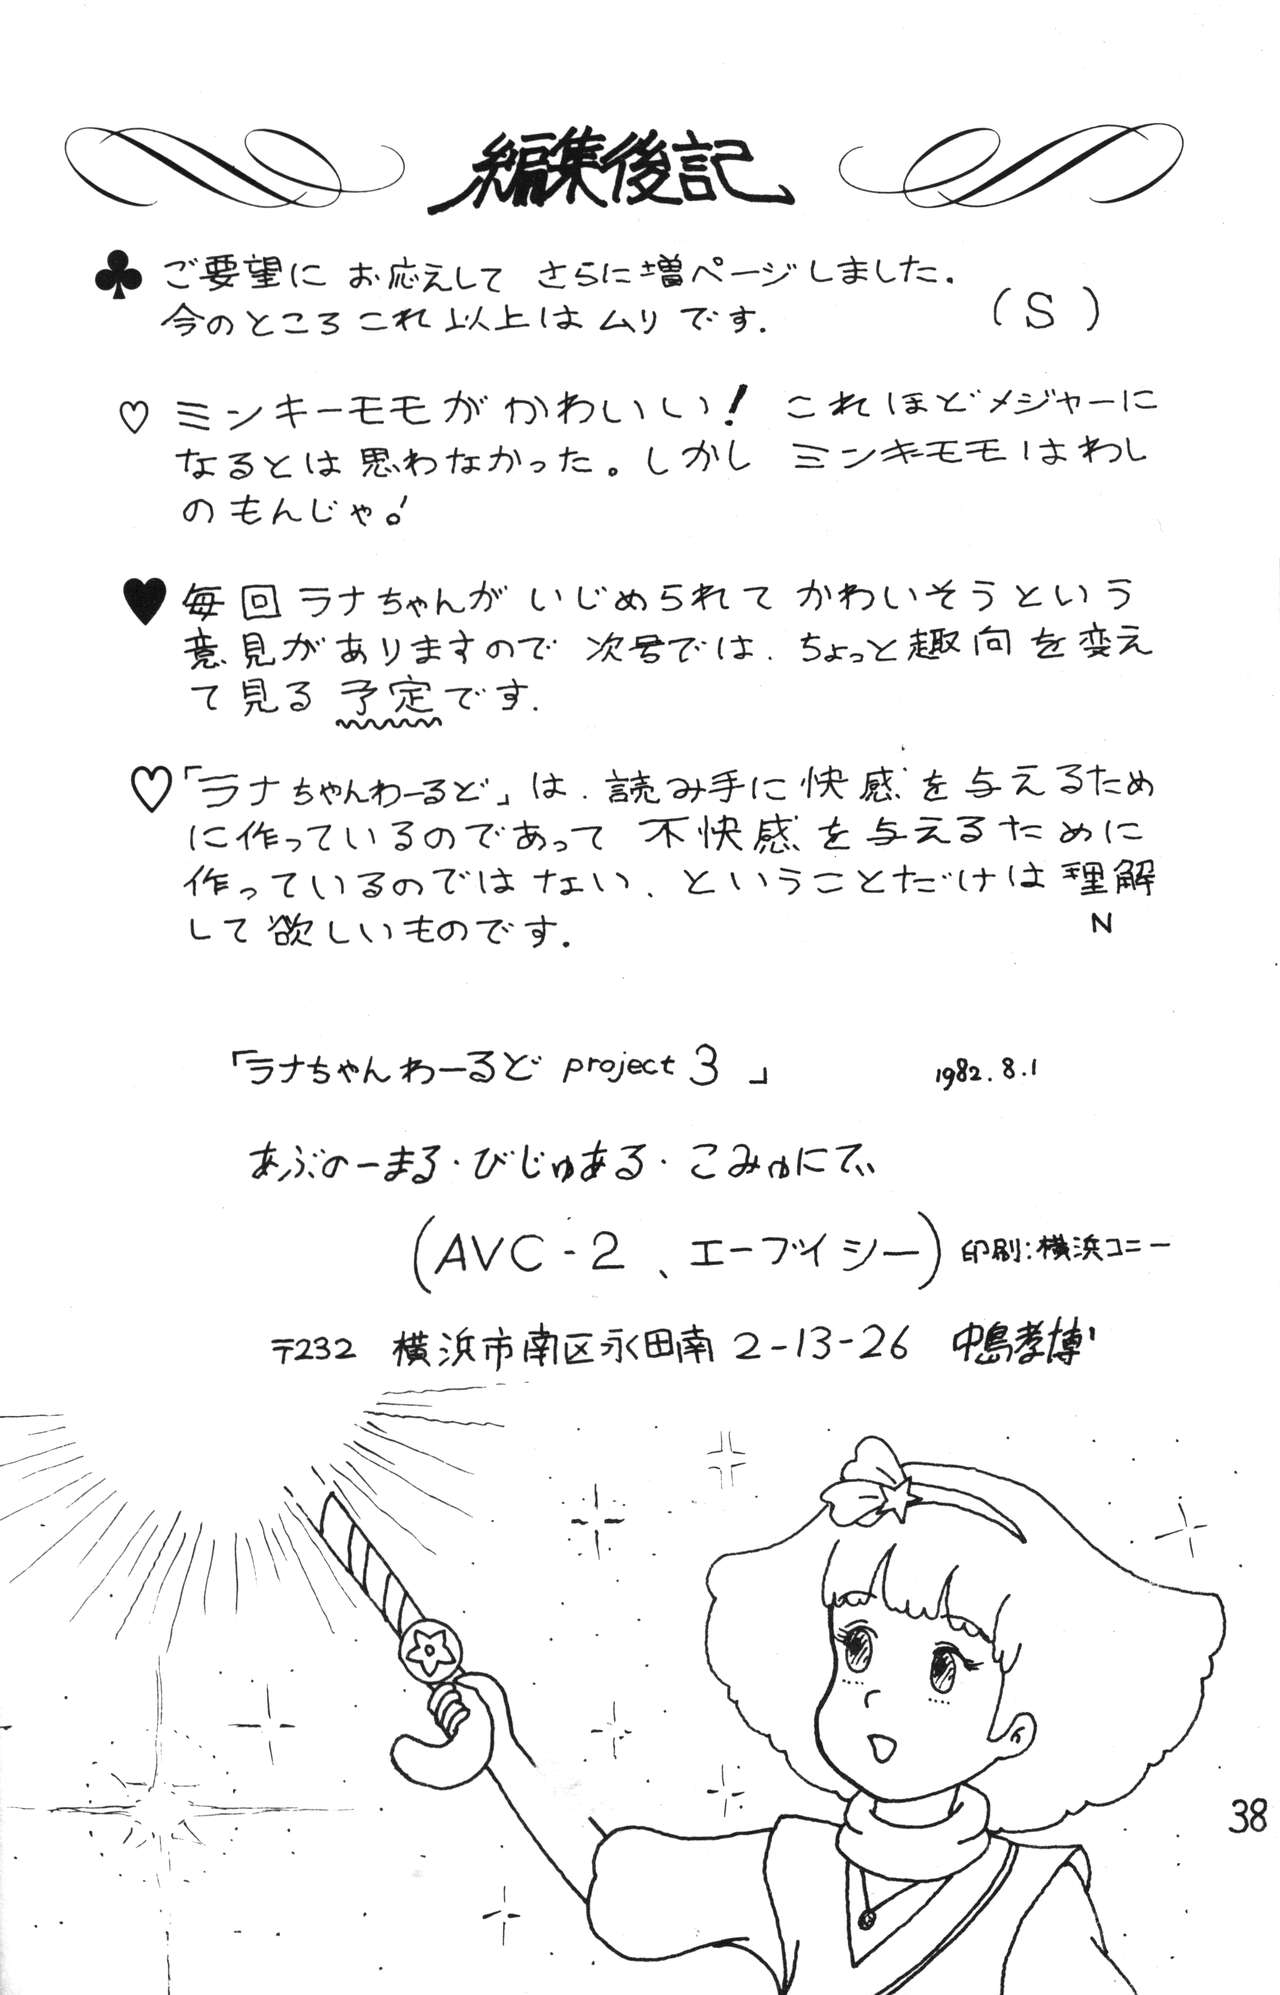 編集後記
♣ ご要望に お応えして さらに増ページしました.
今のところこれ以上は ムリ です.
(S)
♡ ミンキーモモが かわいい! これほどメジャーに
なるとは思わなかった。しかし ミンキーモモはわし
のもんじゃ!
♥ 毎回 ラナちゃんが いじめられて かわいそうという
意見がありますので 次号では. ちょっと趣向を変え
て見る 予定です.
♡「ラナちゃんわーるど」は. 読み手に 快感を与えるため
に作っているのであって 不快感を与えるために
作っているのではない、ということだけは理解
して欲しいものです.
N
「ラナちゃんわーるど project 3 」 1982. 8. 1
あぶのーまる・びじゅある・こみゅにてぃ
(AVC-2、エーブイシー) 印刷:横浜コニー
〒232 横浜市南区永田南 2-13-26 中島孝博
38